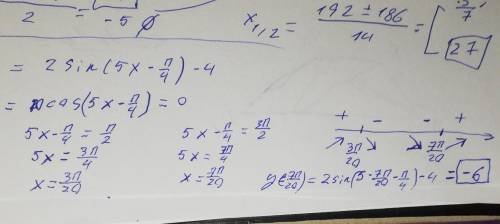 2
= -5 ∅
x₁,₂ = (192 ± 186)/14 = [ 3/7
27
= 2 sin(5x - π/4) - 4
= 10cos(5x - π/4) = 0
5x - π/4 = π/2
5x = 3π/4
x = 3π/20
5x - π/4 = 3π/2
5x = 7π/4
x = 7π/20
+ - - +
3π/20 7π/20
y(7π/20) = 2sin(5·7π/20 - π/4) - 4 = -6